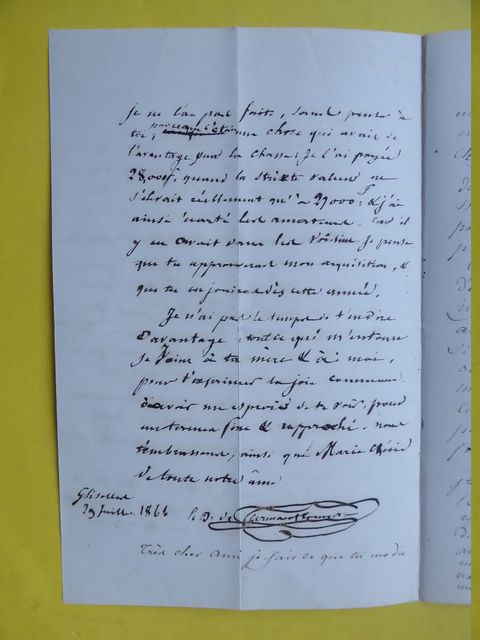 je ne l'ai pas faite, sans penser à
toi, parceque c'était une chose qui avait de
l'avantage pour la chasse; je l'ai payée
28,000f, quand la stricte valeur ne
s'élevait réellement qu'à 27000f; & j'ai
ainsi écarté les amateurs, car il
y en avait dans les voisins. Je pense
que tu approuveras mon aquisition, &
que tu en jouiras dès cette année.
Je n'ai pas le temps de t'en dire
d'avantage; tout ce qui m'entoure
se joint à ta mère & à moi,
pour t'exprimer la joie commune
d'avoir un espoir de te voir, pour
un terme fixe & rapproché. nous
t'embrassons, ainsi que Marie
de toute notre âme
29 Juillet 1864 le D. de
Très cher ami je sais ce que tu me dis